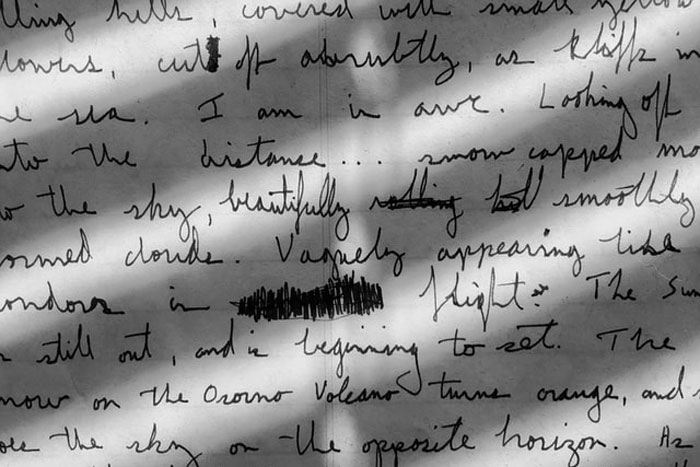 lling hills, covered with small yellow
lowers, cut off abruptly, as cliffs in
he sea. I am in awe. Looking off
nto the distance.... snow capped mo
to the sky, beautifully rolling smoothly
ormed clouds. Vaguely appearing like
ondors in flight. The sun
is still out, and is beginning to set. The
now on the Osorno Volcano turns orange, and s
oes the sky on the opposite horizon. As